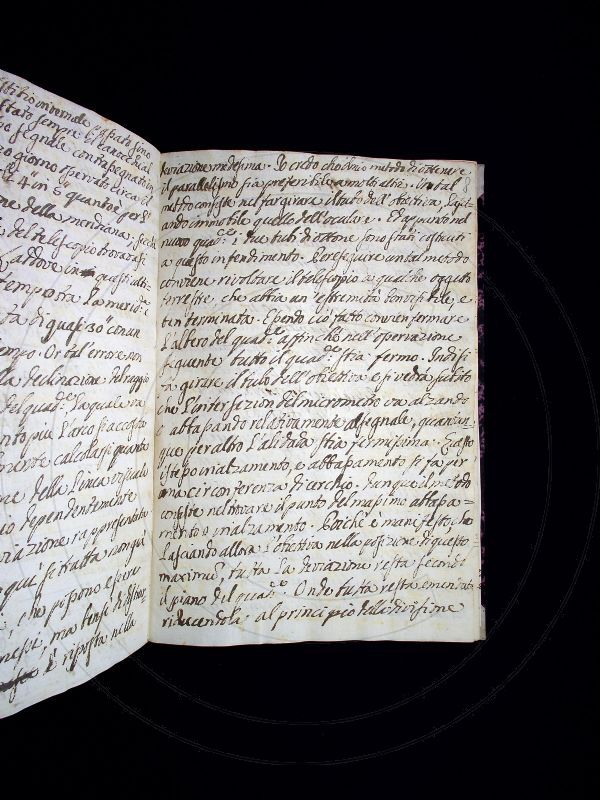 stitio invernale è
stato sempre il canocchial
segnale contrapegnato in
zo giorno
e 4" in 5" quanto per
ne della meridiana; sicchè
del telescopio trovarasi
laddove in questi ulti-
tempo fra la merid.e
di quasi 30" convie
empo. Or tal errore non
la declinazione del raggio
del quad.e, la quale va
nto più l'arco s'accosta
mente calcolarsi quanta
ne della linea visuale
dependentemente
viazione rappresentata
qui si tratta non già
che possono essere
ma bensì
è riposta nella
8
deviazione medesima. Io credo che il mio metodo di ottenere
il parallelismo sia preferibile a molti altri. Un tal
metodo consiste nel far girare il tubo dell'obiettiva, las-
ando immobile quello dell'oculare. Ed appunto nel
nuovo quad.e i due tubi di ottone sono stati costruiti
a questo intendimento. Per eseguire un tal metodo
conviene rivoltare il telescopio a qualche oggetto
terrestre, che abbia un'estremità ben visibile, e
ben terminata. E quando ciò fatto convien fermare
l'altero del quad.e affinchè nell'operazione
seguente tutto il quad.e stia fermo. Indi si fa-
rà girare il tubo dell'obiettiva e si vedrà subito
che l'intersezione del micrometro va alzando
e abbassando relativamente al segnale, quantun-
que per altro l'alidada stia fermissima. E questo
istesso inalzamento, e abbassamento si fa per
una circonferenza di cerchio. Dunque il metodo
consiste nel trovare il punto del massimo abbassa-
mento o inalzamento. Poichè è manifesto, che
lasciando allora l'obiettiva nella posizione di questo
maximum, tutta la deviazione resta secondo
il piano del quad.e. Onde tutta resta emendata
riducendola al principio della divisione